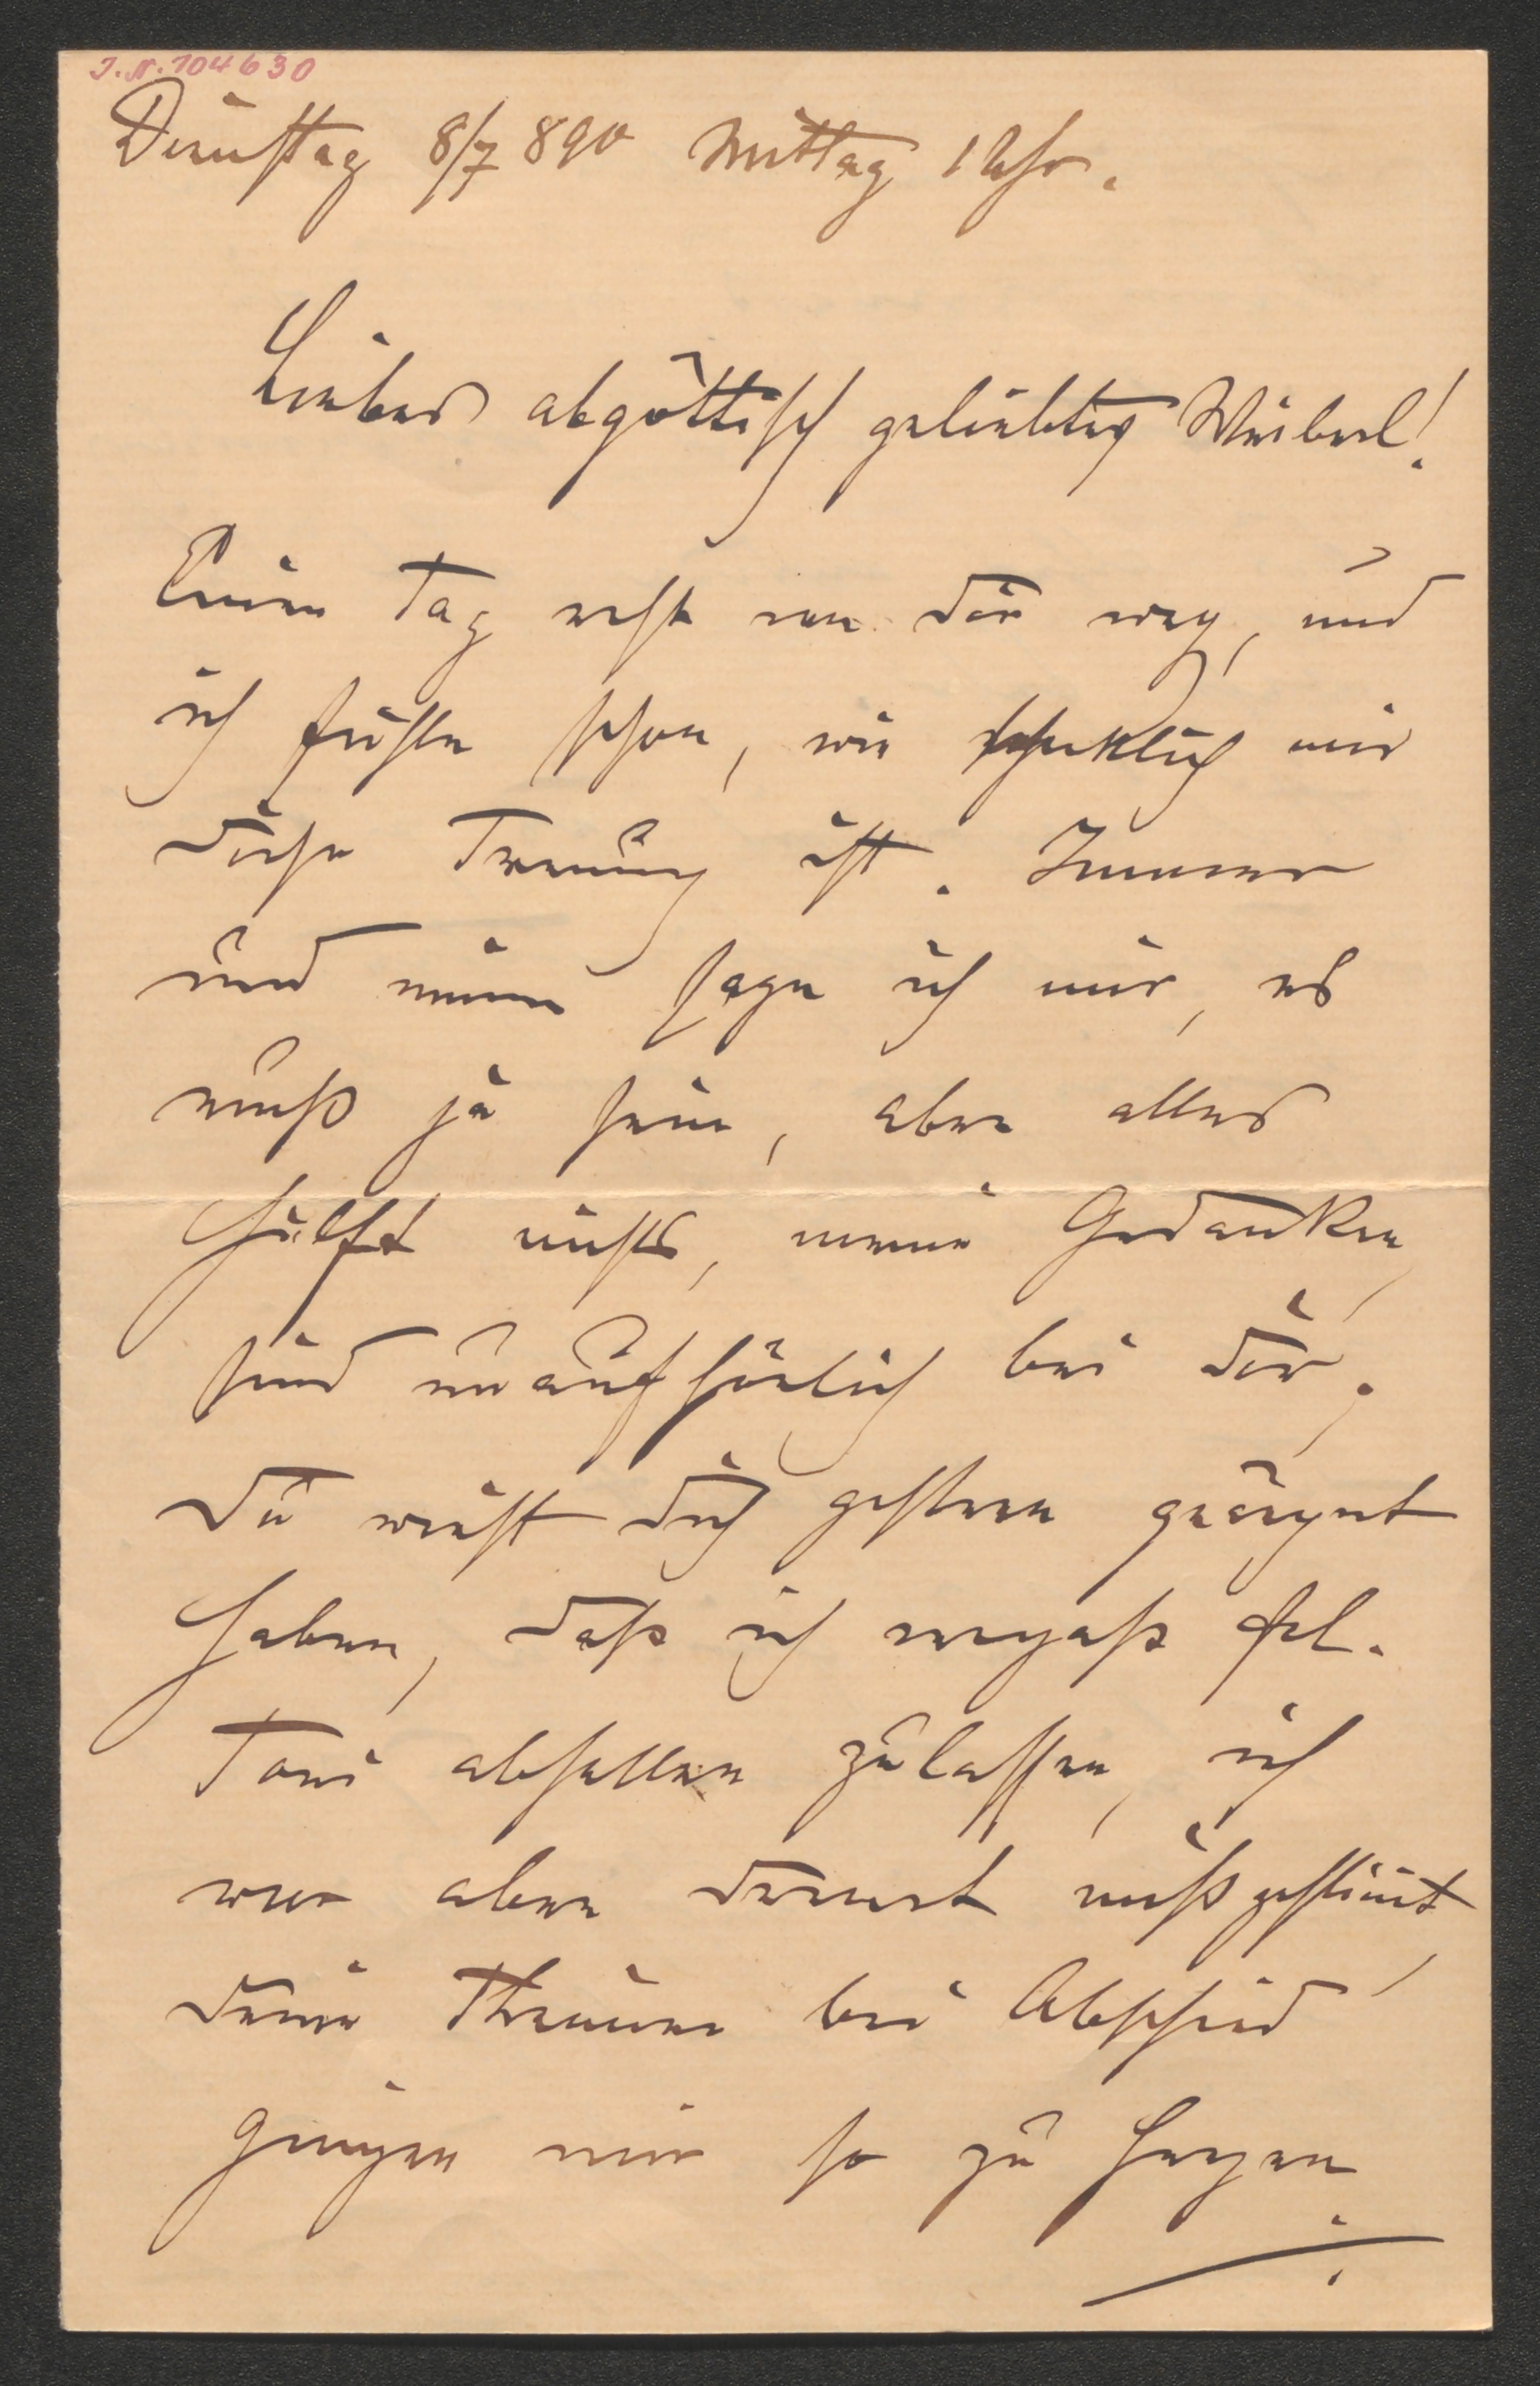 J. N. 104630
Dienstag 8/7 890 Mittag 1 Uhr.
Liebes abgöttisch geliebtes Weiberl!
Einen Tag erst von Dir weg, und
ich fühle schon, wie schreklich mir
diese Trenung ist. Immer
und immer sage ich mir, es
muß ja sein, aber alles
hilft nichts, meine Gedanken,
sind unaufhörlich bei Dir.
Du wirst Dich gestern geärgert
haben, daß ich vergaß Frl.
Toni abhollen zu lassen, ich
war aber derart mißgestimt,
deine Thränen bei Abschied
gingen mir so zu Herzen
./.